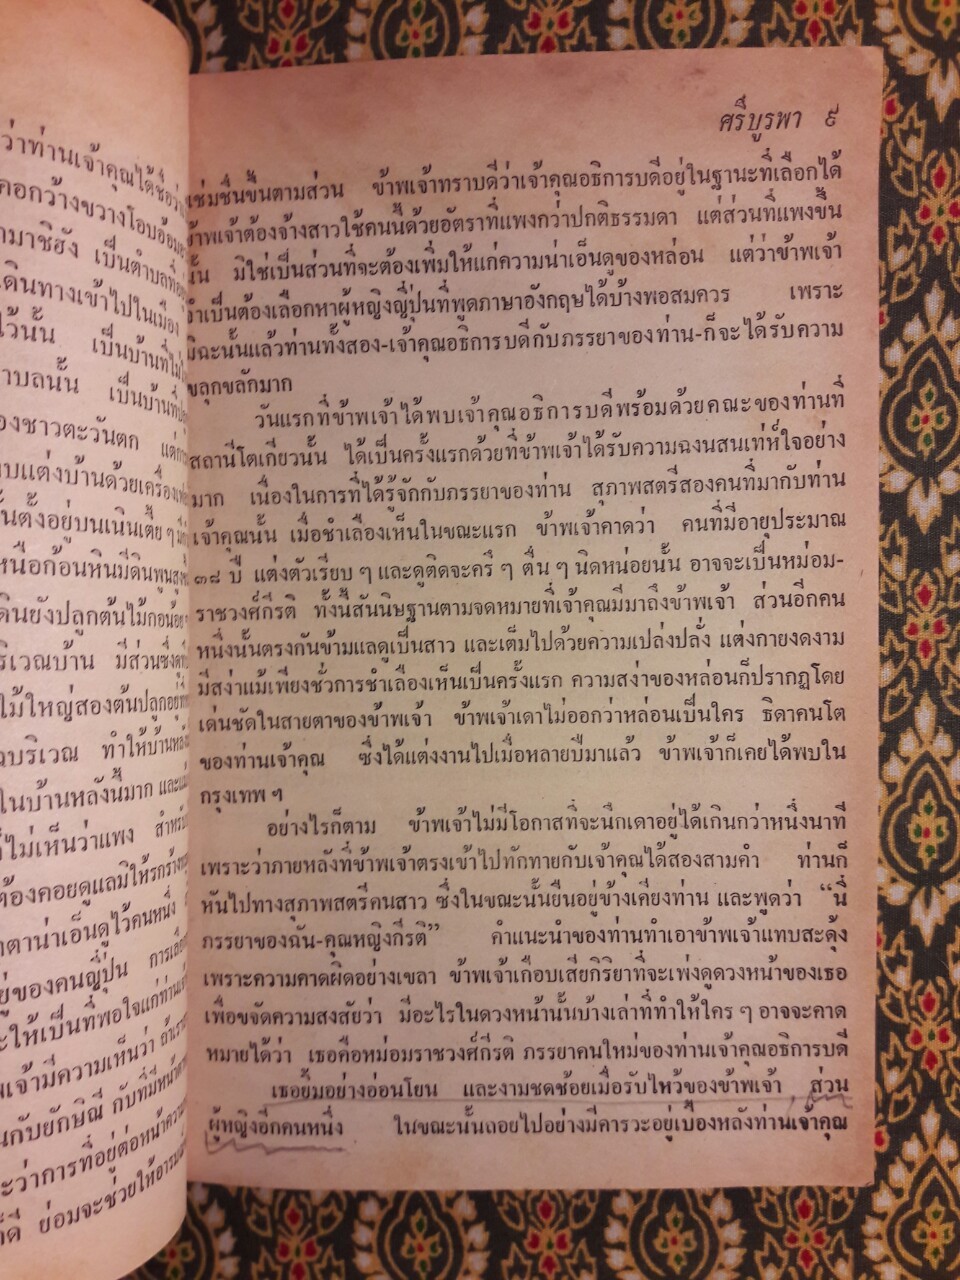 ว่าท่านเจ้าคุณได้ชื่อว่า
คอกว้างขวางโอบอ้อม
เป็นตำบลที่อยู่
เดินทางเข้าไปในเมือง
ไว้นั้น เป็นบ้านที่
าบลนั้น เป็นบ้านที่
องชาวตะวันตก แต่
บแต่งบ้านด้วยเครื่อง
นตั้งอยู่บนเนินเตี้ย ๆ
หนือก้อนหินมีดินพูน
ดินยังปลูกต้นไม้กอน้อย
ริเวณบ้าน มีส่วนซึ่ง
ไม้ใหญ่สองต้นปลูกอยู่
บริเวณ ทำให้บ้านหลัง
ในบ้านหลังนี้มาก และ
ก็ไม่เห็นว่าแพง สำหรับ
ต้องคอยดูแลมิให้รกร้าง
าตาน่าเอ็นดูไว้คนหนึ่ง
ของคนญี่ปุ่น การเลือก
ะให้เป็นที่พอใจแก่ท่าน
เจ้ามีความเห็นว่า ถ้าเรา
นกับยักษิณี กับที่มีหน้าตา
ะว่าการที่อยู่ต่อหน้าความ
ย่อมจะช่วยให้อารมณ์
ศรีบูรพา ๙
แช่มชื่นขึ้นตามส่วน ข้าพเจ้าทราบดีว่าเจ้าคุณอธิการบดีอยู่ในฐานะที่เลือกได้
ข้าพเจ้าต้องจ้างสาวใช้คนนี้ด้วยอัตราที่แพงกว่าปกติธรรมดา แต่ส่วนที่แพงขึ้น
นั้น มิใช่เป็นส่วนที่จะต้องเพิ่มให้แก่ความน่าเอ็นดูของหล่อน แต่ว่าข้าพเจ้า
จำเป็นต้องเลือกหาผู้หญิงญี่ปุ่นที่พูดภาษาอังกฤษได้บ้างพอสมควร เพราะ
มิฉะนั้นแล้วท่านทั้งสอง-เจ้าคุณอธิการบดีกับภรรยาของท่าน-ก็จะได้รับความ
ขลุกขลักมาก
วันแรกที่ข้าพเจ้าได้พบเจ้าคุณอธิการบดีพร้อมด้วยคณะของท่านที่
สถานีโตเกียวนั้น ได้เป็นครั้งแรกด้วยที่ข้าพเจ้าได้รับความฉงนสนเท่ห์ใจอย่าง
มาก เนื่องในการที่ได้รู้จักกับภรรยาของท่าน สุภาพสตรีสองคนที่มากับท่าน
เจ้าคุณนั้น เมื่อชำเลืองเห็นในขณะแรก ข้าพเจ้าคาดว่า คนที่มีอายุประมาณ
๓๘ ปี แต่งตัวเรียบ ๆ และดูติดจะครึ ๆ ตื่น ๆ นิดหน่อยนั้น อาจจะเป็นหม่อม-
ราชวงศ์กีรติ ทั้งนี้สันนิษฐานตามจดหมายที่เจ้าคุณมีมาถึงข้าพเจ้า ส่วนอีกคน
หนึ่งนั้นตรงกันข้ามแลดูเป็นสาว และเต็มไปด้วยความเปล่งปลั่ง แต่งกายงดงาม
มีสง่าแม้เพียงชั่วการชำเลืองเห็นเป็นครั้งแรก ความสง่าของหล่อนก็ปรากฏโดย
เด่นชัดในสายตาของข้าพเจ้า ข้าพเจ้าเดาไม่ออกว่าหล่อนเป็นใคร ธิดาคนโต
ของท่านเจ้าคุณ ซึ่งได้แต่งงานไปเมื่อหลายปีมาแล้ว ข้าพเจ้าก็เคยได้พบใน
กรุงเทพ ฯ
อย่างไรก็ตาม ข้าพเจ้าไม่มีโอกาสที่จะนึกเดาอยู่ได้เกินกว่าหนึ่งนาที
เพราะว่าภายหลังที่ข้าพเจ้าตรงเข้าไปทักทายกับเจ้าคุณได้สองสามคำ ท่านก็
หันไปทางสุภาพสตรีคนสาว ซึ่งในขณะนั้นยืนอยู่ข้างเคียงท่าน และพูดว่า “นี่
ภรรยาของฉัน-คุณหญิงกีรติ” คำแนะนำของท่านทำเอาข้าพเจ้าแทบสะดุ้ง
เพราะความคาดผิดอย่างเขลา ข้าพเจ้าเกือบเสียกิริยาที่จะเพ่งดูดวงหน้าของเธอ
เพื่อขจัดความสงสัยว่า มีอะไรในดวงหน้านั้นบ้างเล่าที่ทำให้ใคร ๆ อาจจะคาด
หมายได้ว่า เธอคือหม่อมราชวงศ์กีรติ ภรรยาคนใหม่ของท่านเจ้าคุณอธิการบดี
เธอยิ้มอย่างอ่อนโยน และงามชดช้อยเมื่อรับไหว้ของข้าพเจ้า ส่วน
ผู้หญิงอีกคนหนึ่ง ในขณะนั้นถอยไปอย่างมีคารวะอยู่เบื้องหลังท่านเจ้าคุณ